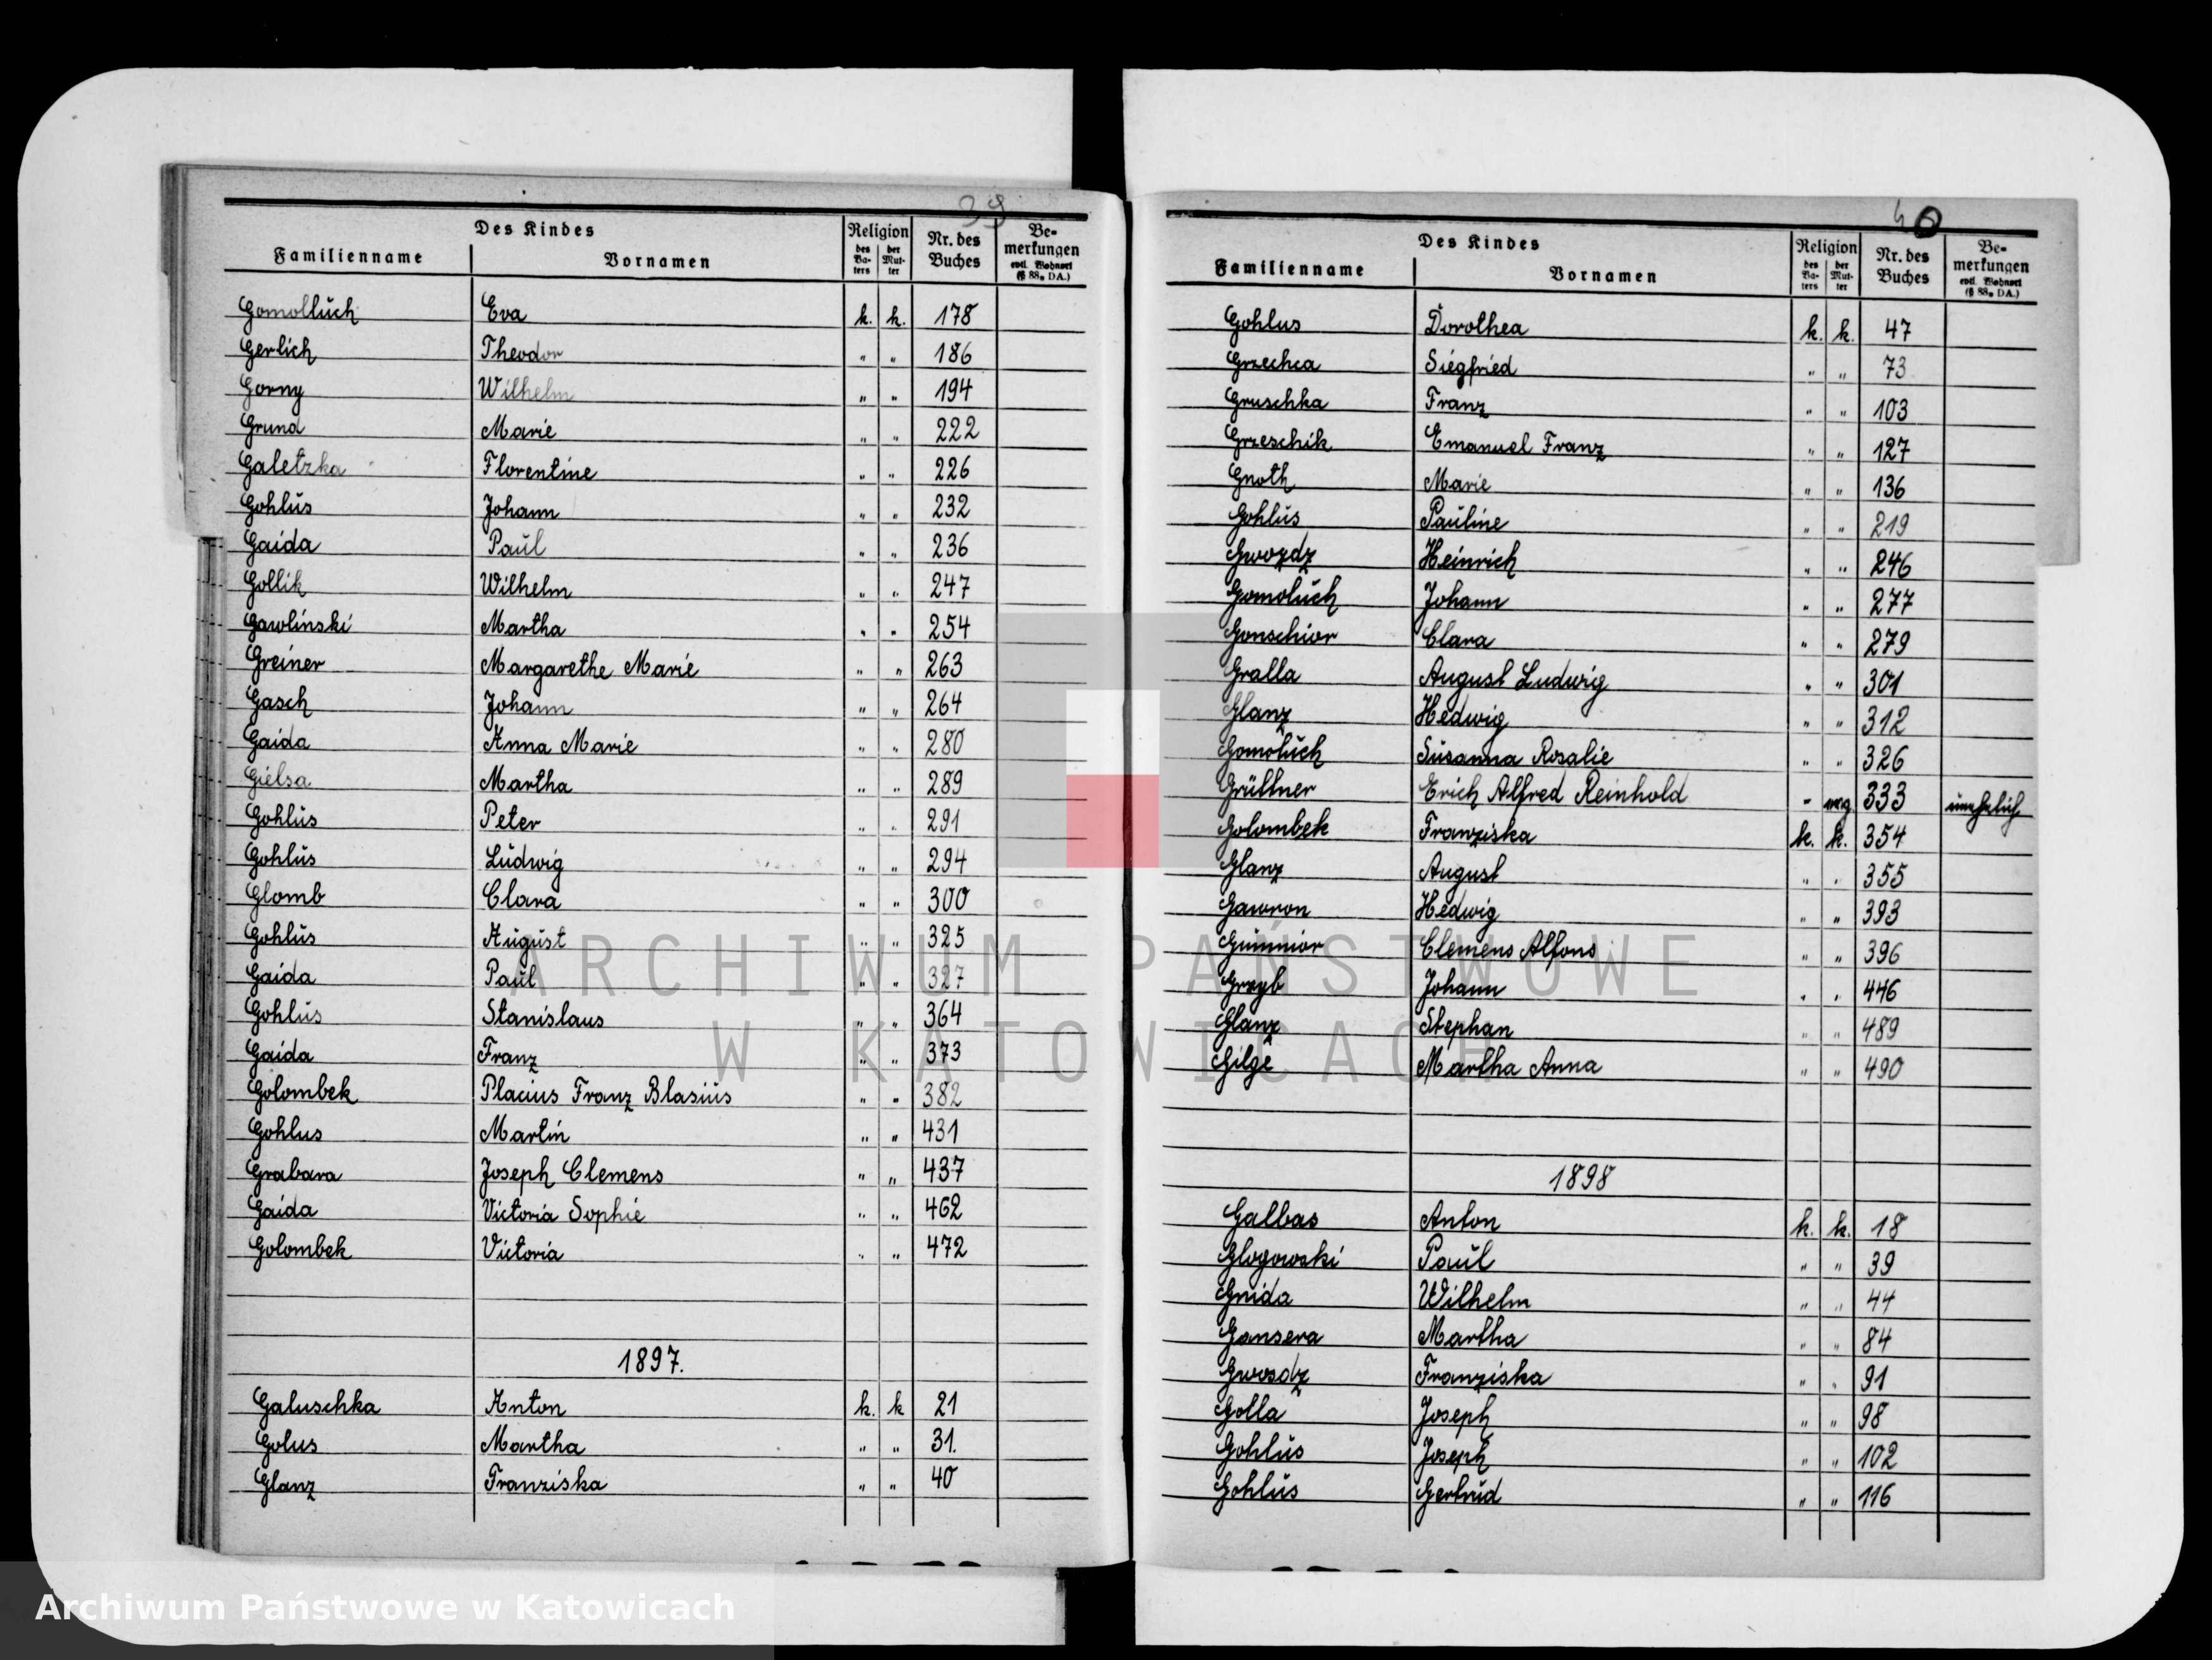 39
Des Kindes
Familienname Vornamen Religion des Vaters der Mutter Nr. des Buches Bemerkungen evtl. Wohnort (§ 88a DA.)
Gomollŭch Eva k. k. 178
Gerlich Theodor " " 186
Gorny Wilhelm " " 194
Grund Marie " " 222
Galetzka Florentine " " 226
Gohlŭs Johann " " 232
Gaida Paŭl " " 236
Gollik Wilhelm " " 247
Gawlinski Martha " " 254
Greiner Margarethe Marie " " 263
Gasch Johann " " 264
Gaida Anna Marie " " 280
Gielsa Martha " " 289
Gohlŭs Peter " " 291
Gohlŭs Lŭdwig " " 294
Glomb Clara " " 300
Gohlŭs Aŭgŭst " " 325
Gaida Paŭl " " 327
Gohlŭs Stanislaus " " 364
Gaida Franz " " 373
Golombek Placius Franz Blasiŭs " " 382
Gohlus Martin " " 431
Grabara Joseph Clemens " " 437
Gaida Victoria Sophie " " 462
Golombek Victoria " " 472
1897.
Galuschka Anton k. k 21
Golus Martha " " 31.
Glanz Franziska " " 40
40
Des Kindes
Familienname Vornamen Religion des Vaters der Mutter Nr. des Buches Bemerkungen evtl. Wohnort (§ 88a DA.)
Gohlus Dorothea k. k. 47
Grzechca Siegfried " " 73
Gruschka Franz " " 103
Grzeschik Emanuel Franz " " 127
Gnoth Marie " " 136
Gohlŭs Paŭline " " 219
Gwozdz Heinrich " " 246
Gomolŭch Johann " " 277
Gonschior Clara " " 279
Gralla August Ludwig " " 301
Glanz Hedwig " " 312
Gomolŭch Sŭsanna Rosalie " " 326
Grüttner Erich Alfred Reinhold " 333 ŭnehelich
Golombek Franziska k. k. 354
Glanz August " " 355
Gawron Hedwig " " 393
Clemens Alfons " " 396
Grzyb Johann " " 446
Glanz Stephan " " 489
Gilge Martha Anna " " 490
1898
Galbas Anton k. k. 18
Glogowski Paŭl " " 39
Gnida Wilhelm " " 44
Gansera Martha " " 84
Gwosdz Franziska " " 91
Golla Joseph " " 98
Gohlŭs Joseph " " 102
Gohlŭs Gertrŭd " " 116
ARCHIWUM PAŃSTWOWE
W KATOWICACH
Archiwum Państwowe w Katowicach